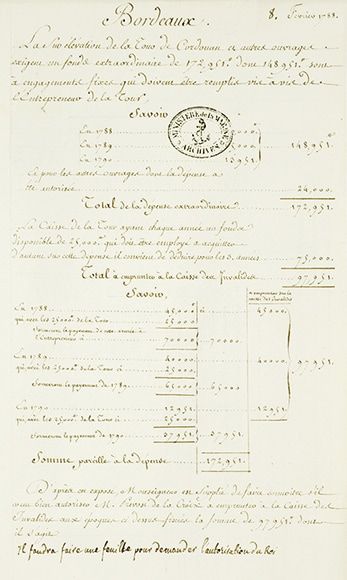 Bordeaux.
8. Février 1788.
La Surélévation de la Tour de Cordouan et autres ouvrages
exigent un fonds extraordinaire de 172,951.# dont 148,951.# sont
à engagements fixes qui doivent être remplis vis à vis de
l'Entrepreneur de la Tour,
Savoir
En 1788
En 1789
En 1790 13951.
148,951.
MINISTERE DE LA MARINE
ARCHIVES
Et pour les autres ouvrages dont la dépense a
été autorisée 24,000.
Total de la dépense extraordinaire 172,951.
La Caisse de la Tour ayant chaque année un fonds
disponible de 25,000.# qui doit être employé à acquitter
d'autant sur cette dépense il convient de déduire pour les 3. années 75,000.
Total à emprunter à la Caisse des Invalides 97,951.
Savoir
à emprunter sur la caisse des Invalides
En 1788 45000.# 45000.
qui avec les 25000.# de la Tour 25000.
formeront le payement de cette année à
l'Entrepreneur à 70000 70000
En 1789 40000. 40000.
qui avec les 25000.# de la Tour ci 25000.
formeront le payement de 1789 65000 65000
97,951.
En 1790 12951 12951
qui avec les 25000.# de la Tour ci 25000.
formeront le payement de 1790 37951. 37951.
Somme pareille à la dépense 172,951.
D'après cet exposé, Monseigneur est supplié de faire connoitre s'il
veut bien autoriser M. Prévost de la Croix à emprunter à la Caisse des
Invalides aux époques ci dessus fixées la somme de 97951.# dont
il s'agit.
Il faudra faire une feuille pour demander l'autorisation du Roi